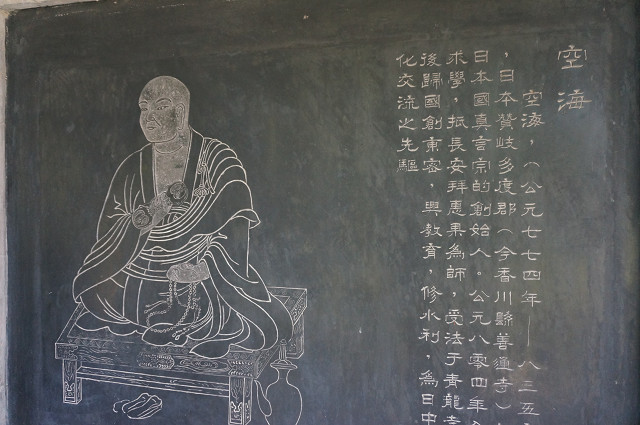 空海
空海，（公元七七四年——八三五
，日本贊岐多度郡（今香川縣善通寺）
日本國真言宗的創始人。公元八零四年
求學，抵長安拜惠果為師，受法于青龍寺
後歸國創東密，興教育，修水利，為日中
化交流之先驅